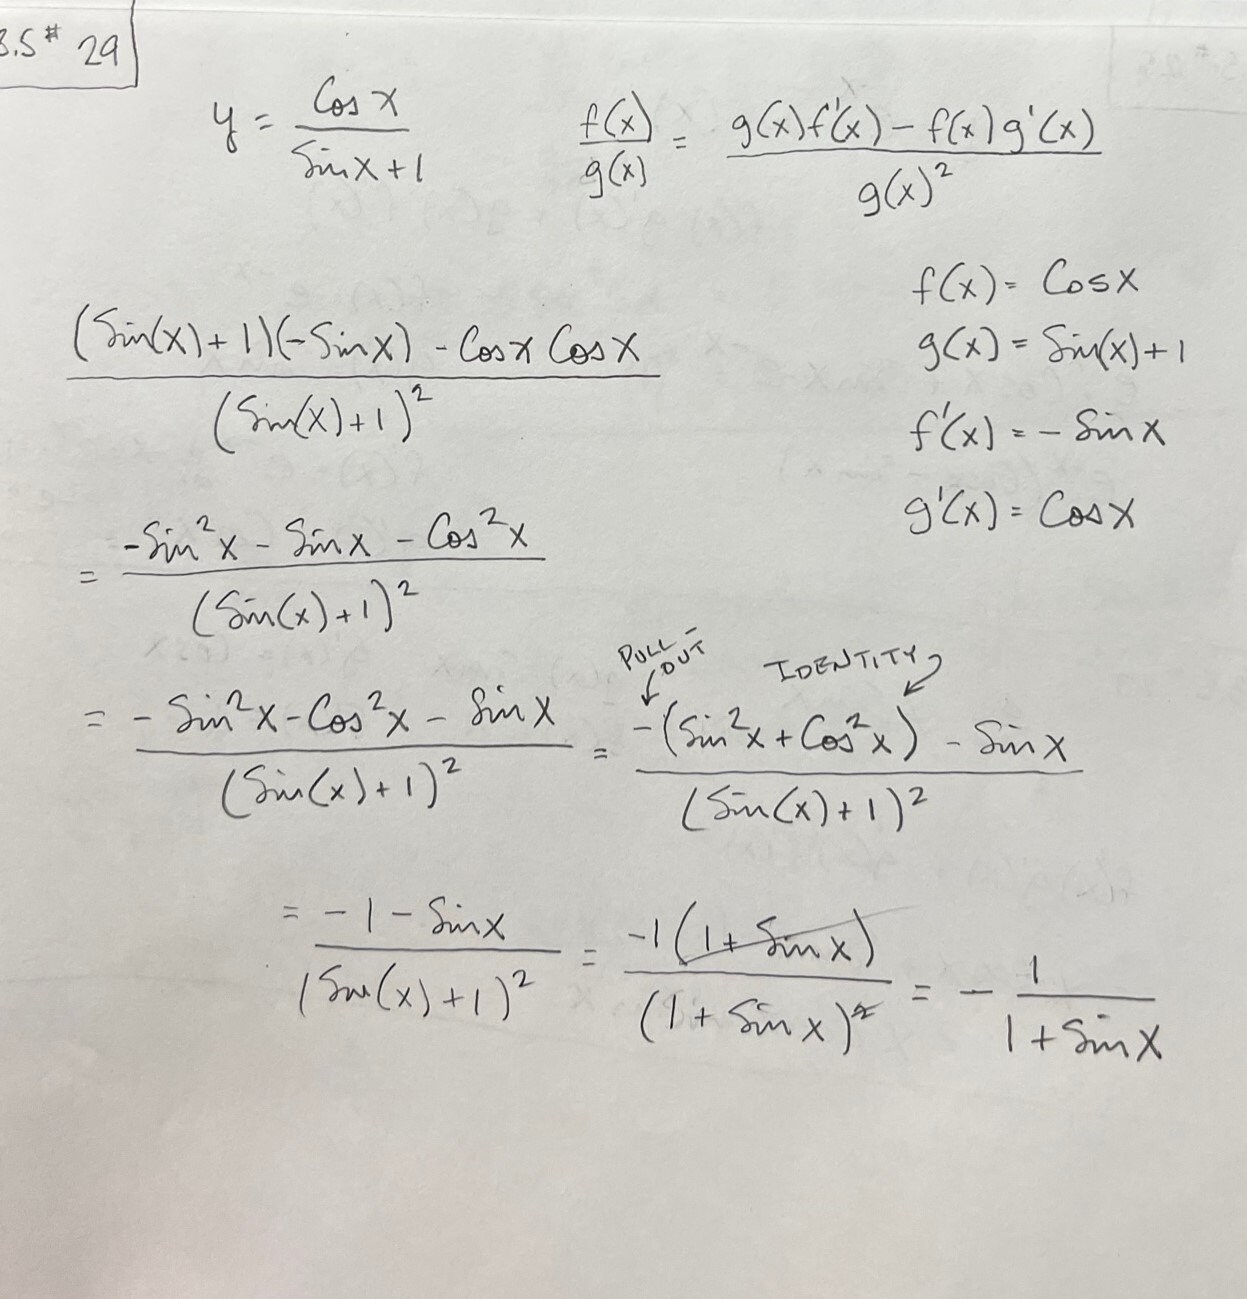 3.5 # 29
y = Cos x / (Sin x + 1)    f(x)/g(x) = (g(x)f'(x) - f(x)g'(x)) / g(x)²
f(x) = Cos x
((Sin(x) + 1)(-Sin x) - Cos x Cos x) / (Sin(x) + 1)²    g(x) = Sin(x) + 1
f'(x) = - Sin x
g'(x) = Cos x
= (-Sin²x - Sin x - Cos²x) / (Sin(x) + 1)²
PULL - OUT    IDENTITY
= (- Sin²x - Cos²x - Sin x) / (Sin(x) + 1)² = (-(Sin²x + Cos²x) - Sin x) / (Sin(x) + 1)²
= (-1 - Sin x) / (Sin(x) + 1)² = -1(1 + Sin x) / (1 + Sin x)² = - 1 / (1 + Sin x)